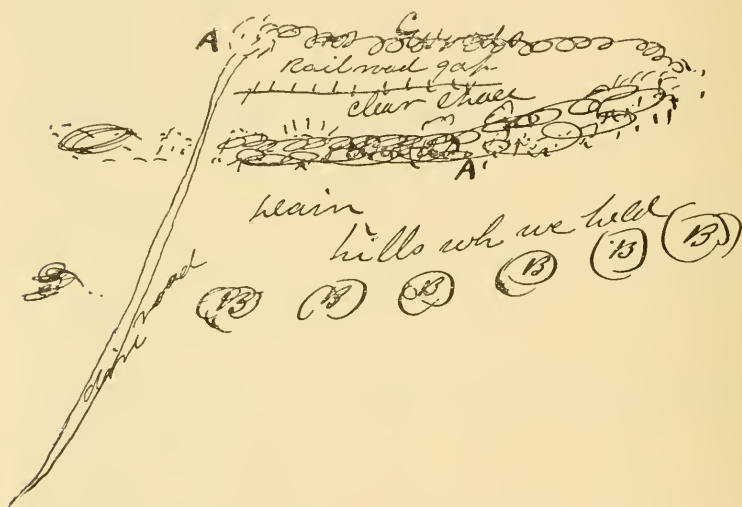 C
A woods
Railroad gap
clear space
A
plain
hills wh we held
B B B B B B
dirt road